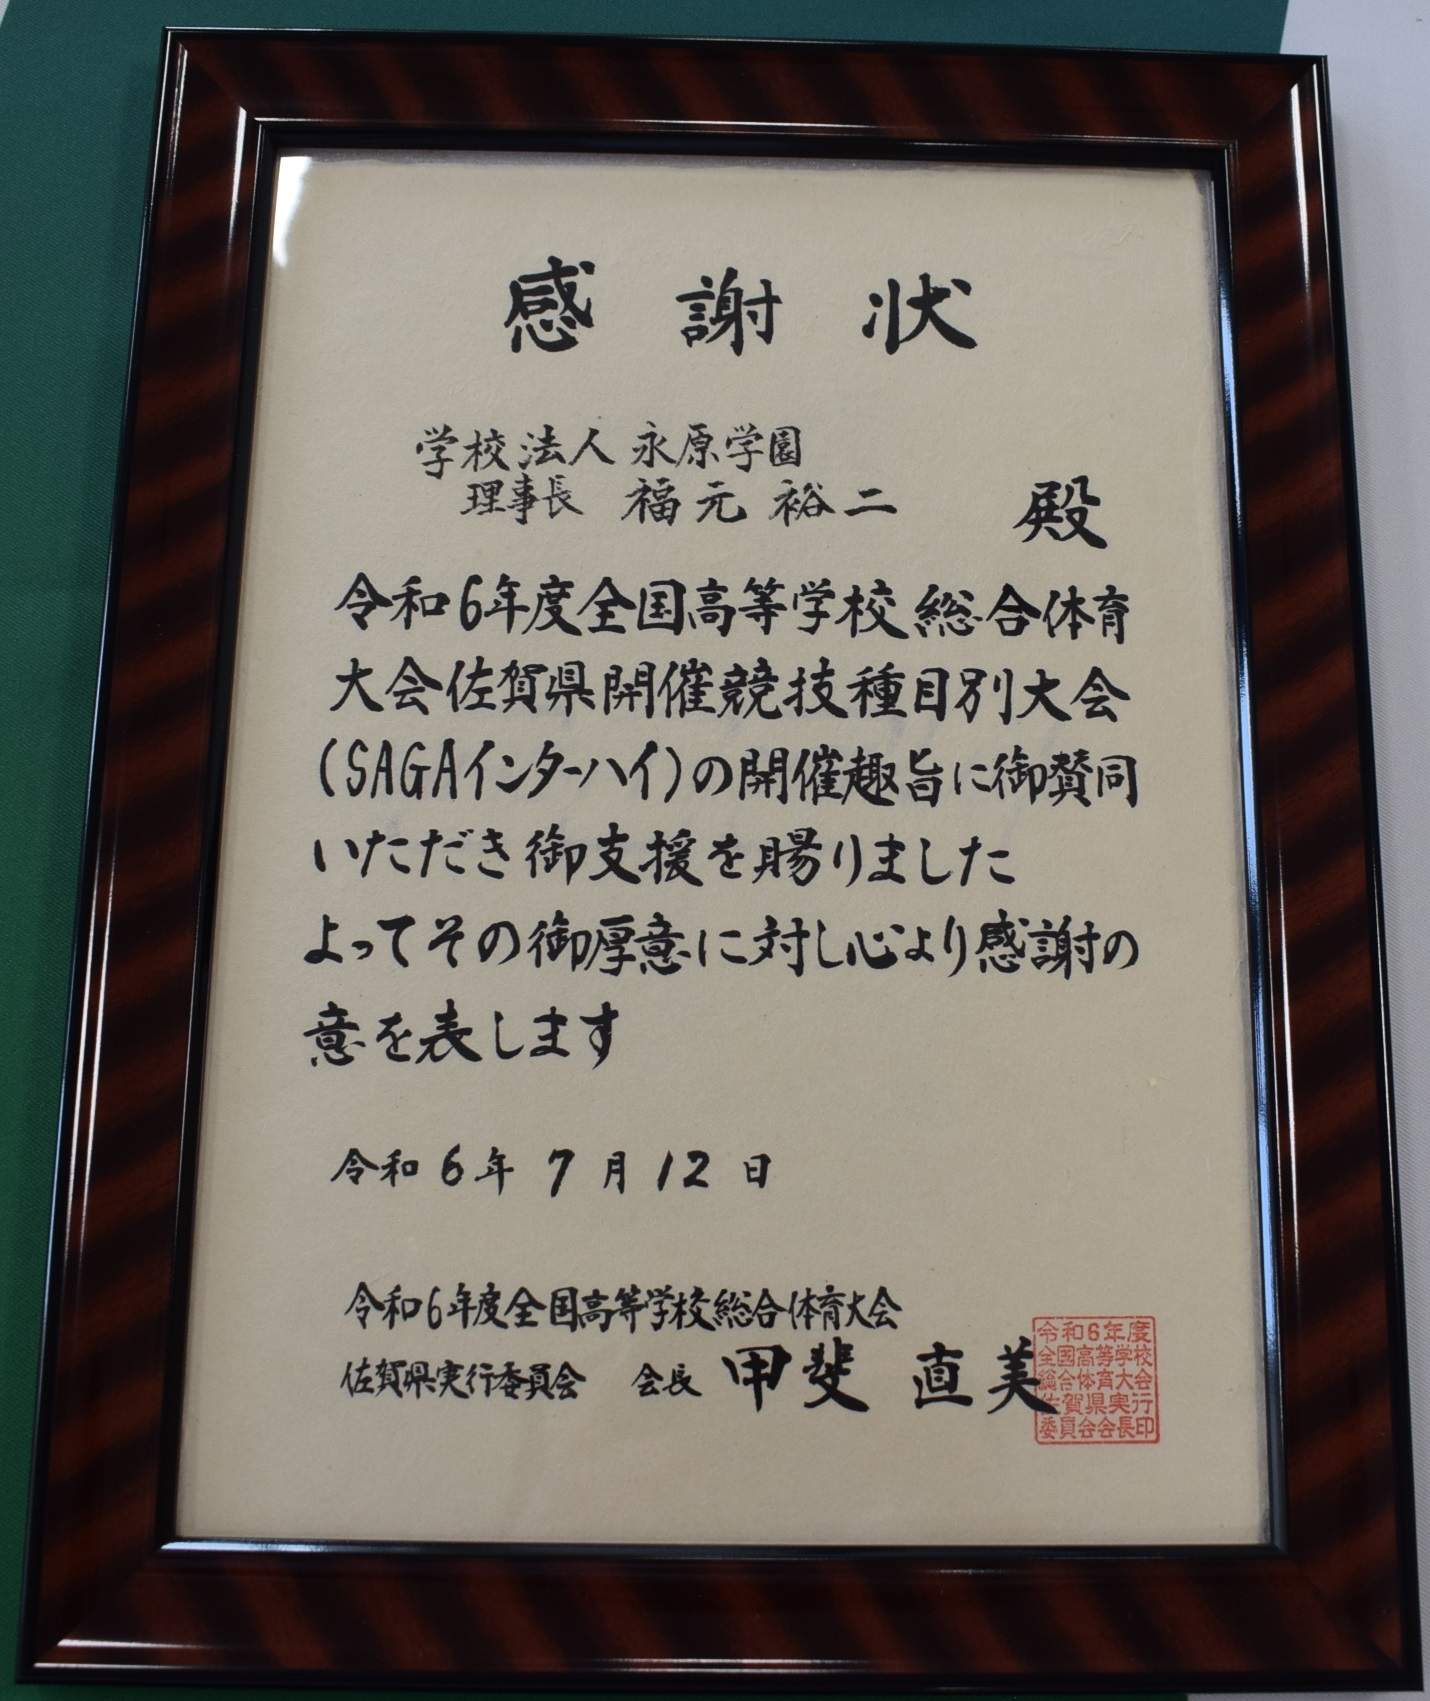 感謝状
学校法人 永原学園
理事長 福元 裕二 殿
令和6年度全国高等学校総合体育
大会佐賀県開催競技種目別大会
(SAGAインターハイ)の開催趣旨に御賛同
いただき御支援を賜りました
よってその御厚意に対し心より感謝の
意を表します
令和6年7月12日
令和6年度全国高等学校総合体育大会
佐賀県実行委員会 会長 甲斐 直美
令和6年度
全国高等学校
総合体育大会
佐賀県実行
委員会会長印